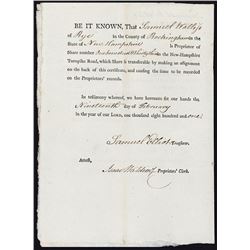 BE IT KNOWN, That Samuel Wallis
of Rye in the County of Rockingham in the
State of New Hampshire is Proprietor of
Share number in the New-Hampshire
Turnpike Road, which Share is transferable by making an assignment
on the back of this certificate, and causing the time to be recorded
on the Proprietors' records.
In testimony whereof, we have hereunto set our hands the
Nineteenth day of February
in the year of our LORD, one thousand eight hundred and one
Samuel Elliot
Attest,
Proprietors' Clerk.